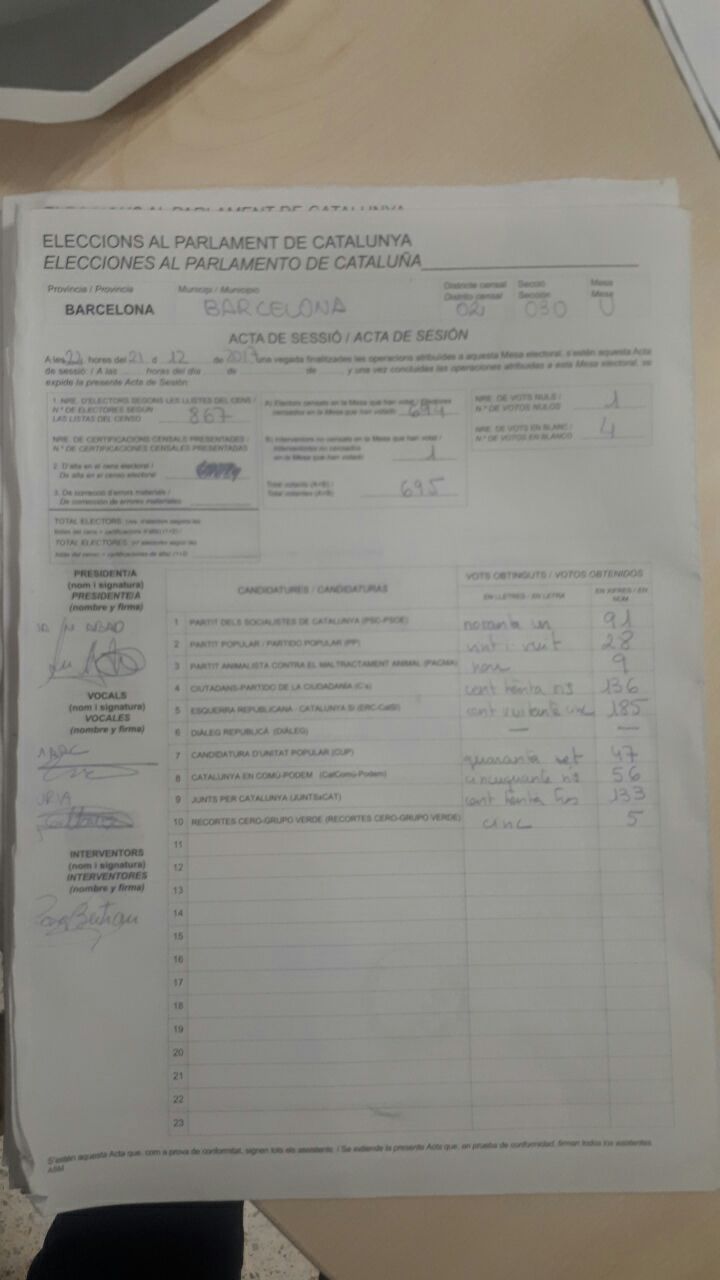 ELECCIONS AL PARLAMENT DE CATALUNYA
ELECCIONES AL PARLAMENTO DE CATALUÑA
Província / Provincia Municipi / Municipio Districte censal Secció Mesa
Distrito censal Sección Mesa
BARCELONA BARCELONA 02 030 U
ACTA DE SESSIÓ / ACTA DE SESIÓN
A les 22 hores del 21 d 12 de 2017 una vegada finalitzades les operacions atribuïdes a aquesta Mesa electoral, s'estén aquesta Acta
de sessió: / A las horas del día de de y una vez concluidas las operaciones atribuidas a esta Mesa electoral, se
expide la presente Acta de Sesión:
1. NRE. D'ELECTORS SEGONS LES LLISTES DEL CENS /
N.º DE ELECTORES SEGÚN
LAS LISTAS DEL CENSO 867
NRE. DE CERTIFICACIONS CENSALS PRESENTADES /
N.º DE CERTIFICACIONES CENSALES PRESENTADAS
2. D'alta en el cens electoral /
De alta en el censo electoral
3. De correcció d'errors materials /
De corrección de errores materiales
TOTAL ELECTORS
TOTAL ELECTORES
A) Electors censats en la Mesa que han votat / Electores
censados en la Mesa que han votado 694
B) Interventors no censats en la Mesa que han votat /
Interventores no censados
en la Mesa que han votado 1
Total votants (A+B) /
Total votantes (A+B) 695
NRE. DE VOTS NULS /
N.º DE VOTOS NULOS 1
NRE. DE VOTS EN BLANC /
N.º DE VOTOS EN BLANCO 4
PRESIDENT/A
(nom i signatura)
PRESIDENTE/A
(nombre y firma)
VOCALS
(nom i signatura)
VOCALES
(nombre y firma)
INTERVENTORS
(nom i signatura)
INTERVENTORES
(nombre y firma)
CANDIDATURES / CANDIDATURAS VOTS OBTINGUTS / VOTOS OBTENIDOS
EN LLETRES / EN LETRA EN XIFRES / EN NÚM
1 PARTIT DELS SOCIALISTES DE CATALUNYA (PSC-PSOE) noranta un 91
2 PARTIT POPULAR / PARTIDO POPULAR (PP) vint i vuit 28
3 PARTIT ANIMALISTA CONTRA EL MALTRACTAMENT ANIMAL (PACMA) nou 9
4 CIUTADANS-PARTIDO DE LA CIUDADANÍA (C's) cent trenta sis 136
5 ESQUERRA REPUBLICANA - CATALUNYA SÍ (ERC-CatSí) cent vuitanta cinc 185
6 DIÀLEG REPUBLICÀ (DIÀLEG) — —
7 CANDIDATURA D'UNITAT POPULAR (CUP) quaranta set 47
8 CATALUNYA EN COMÚ-PODEM (CatComú-Podem) cinquanta sis 56
9 JUNTS PER CATALUNYA (JUNTSxCAT) cent trenta tres 133
10 RECORTES CERO-GRUPO VERDE (RECORTES CERO-GRUPO VERDE) cinc 5
11
12
13
14
15
16
17
18
19
20
21
22
23
S'estén aquesta Acta que, com a prova de conformitat, signen tots els assistents. / Se extiende la presente Acta que, en prueba de conformidad, firman todos los asistentes